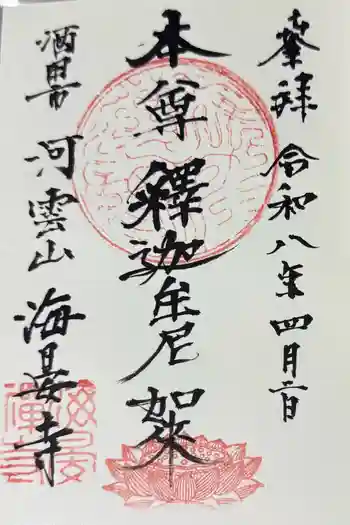 奉拝 令和八年四月二日
本尊 釋迦牟尼如來
酒田市 河雲山 海晏寺